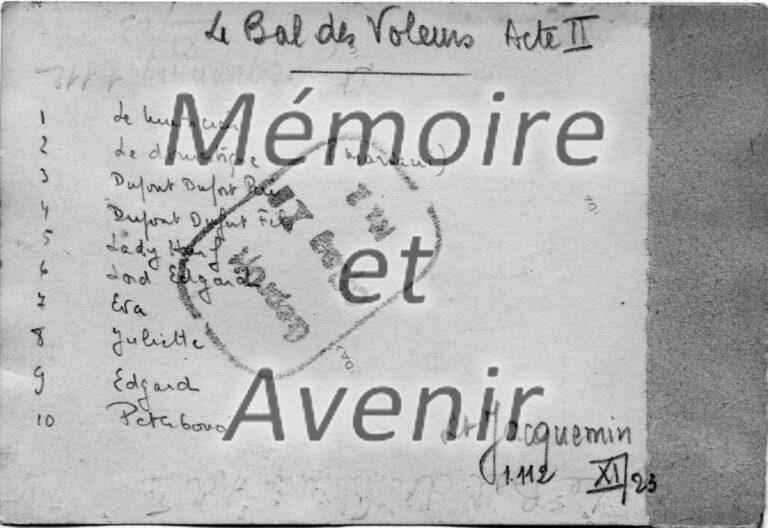 Le Bal des Voleurs Acte II
Mémoire
et
Avenir
1 Le musicien
2 Le domestique
3 Dupont Dufort Père
4 Dupont Dufort Fils
5 Lady Hurf
6 Lord Edgard
7 Eva
8 Juliette
9 Edgard
10 Peterbono
Geprüft
Jacquemin
1.112 XI/23